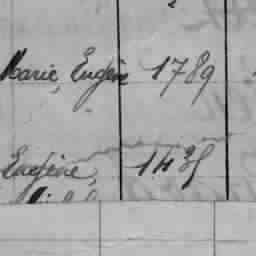 Marie, Eugén 1789
Eugéne, 1435